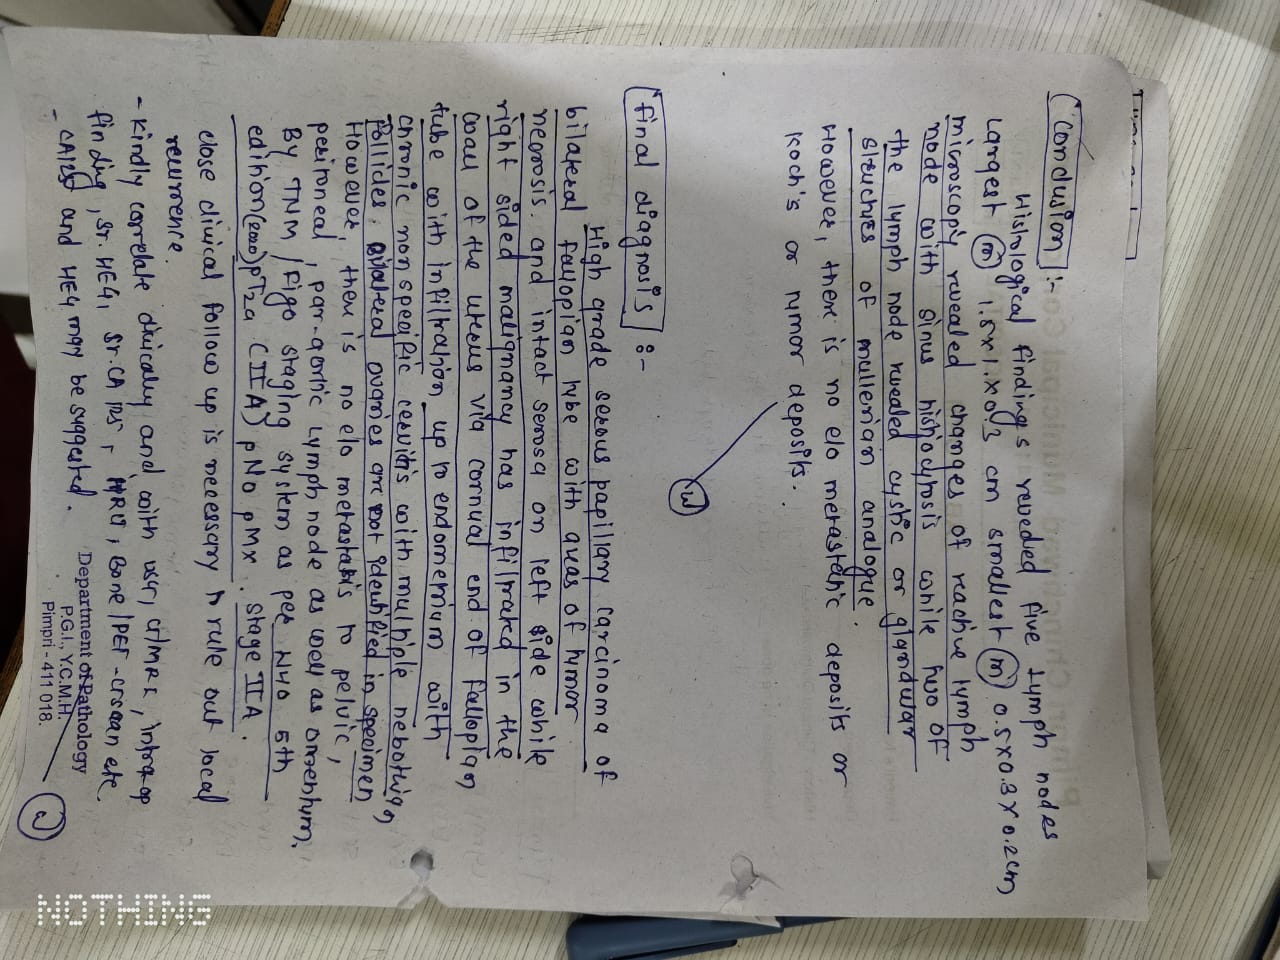 Conclusion :-
Histological findings revealed five lymph nodes
Largest (m) 1.5x1.x0.3 cm smallest (m) 0.5x0.3x0.2cm
microscopy revealed changes of reactive lymph
node with sinus histiocytosis while two of
the lymph node revealed cystic or glandular
structures of mullerian analogue.
However, there is no e/o metastatic deposits or
Koch's or tumor deposits.
Final diagnosis :-
High grade serous papillary carcinoma of
bilateral fallopian tube with areas of tumor
necrosis. and intact serosa on left side while
right sided malignancy has infiltrated in the
wall of the uterus via cornual end of fallopian
tube with infiltration up to endometrium with
chronic nonspecific cervitis with multiple nebothian
follicles. Bilateral ovaries are not identified in specimen
However, there is no e/o metastasis to pelvic,
peritoneal, par-aortic lymph node as well as omentum.
By TNM / Figo staging system as per WHO 5th
edition (2020) pT2a (IIA) pN0 pMx. Stage IIA.
close clinical follow up is necessary to rule out local
recurrence.
- Kindly correlate clinically and with USG, CT/MRI, intraop
finding, Sr. HE4, Sr. CA 125, Bone/PET-scan etc.
- CA125 and HE4 may be suggested.
Department of Pathology
P.G.I., Y.C.M.H.
Pimpri - 411 018.
NOTHING